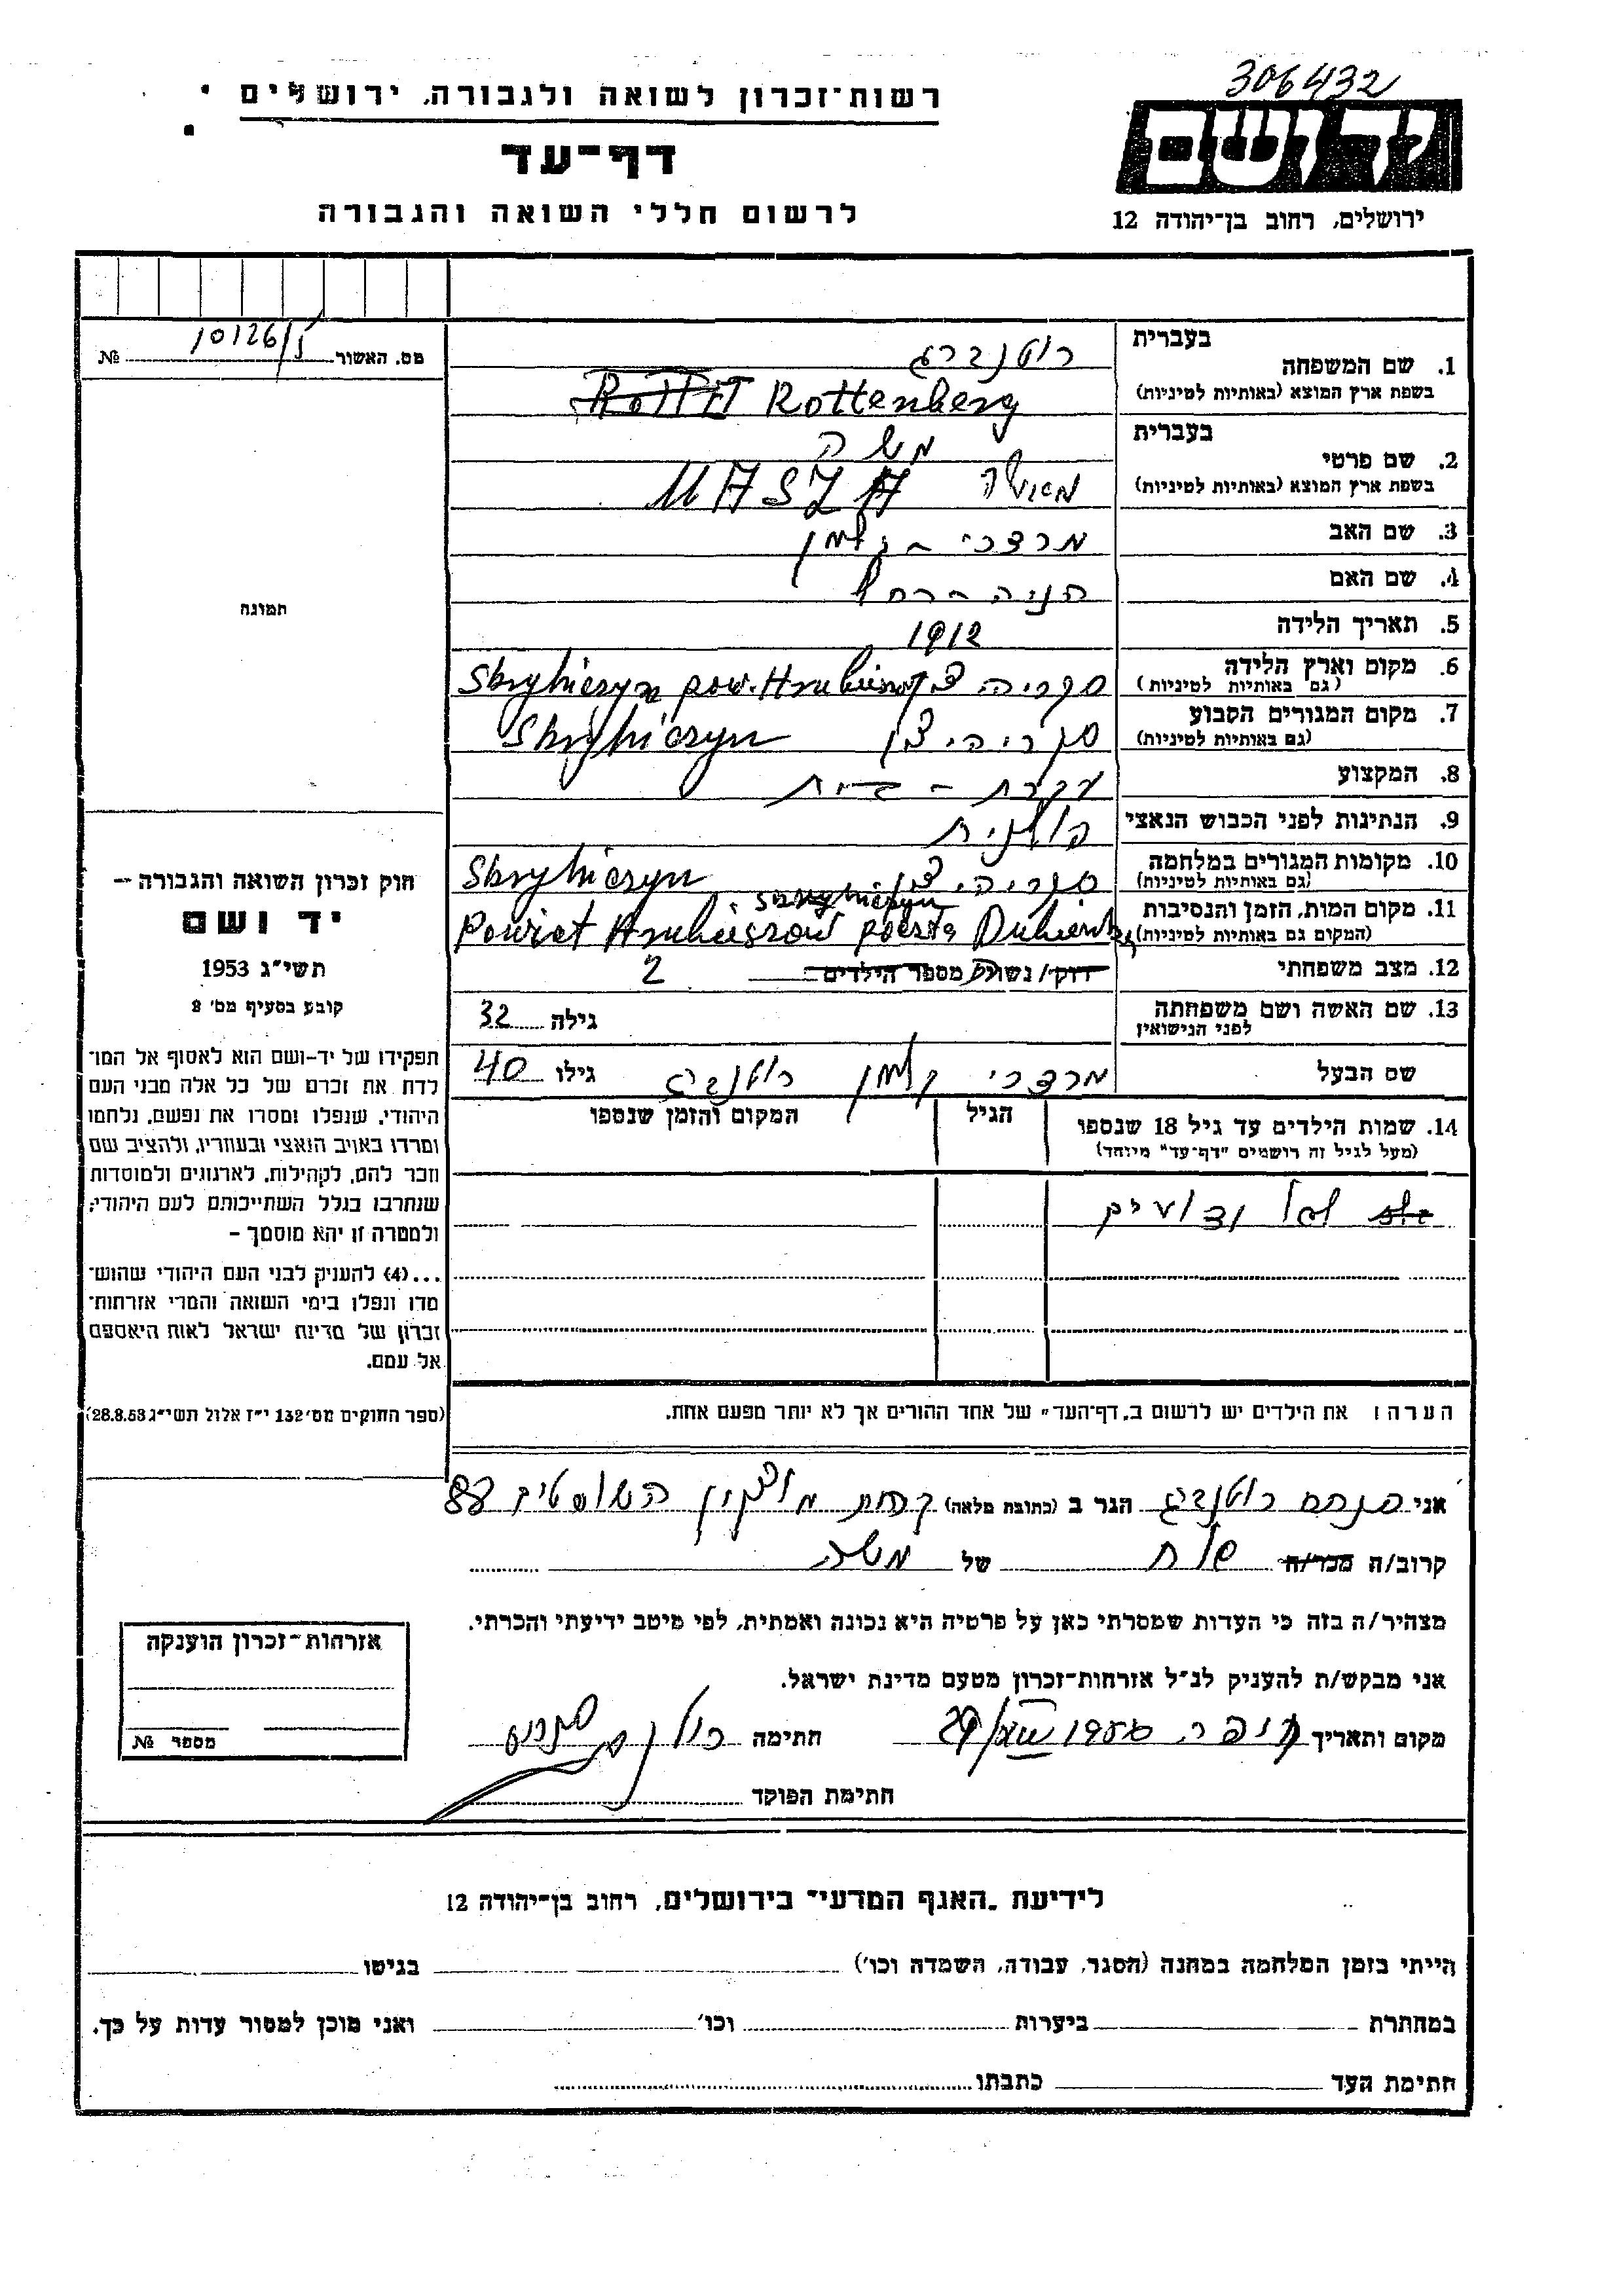 306432
רשות־זכרון לשואה ולגבורה, ירושלים
יד ושם
דף־עד
ירושלים, רחוב בן־יהודה 12
לרשום חללי השואה והגבורה
מס. האשור № 10126/
1. שם המשפחה בעברית רוטנברג
בשפת ארץ המוצא (באותיות לטיניות) Rottenberg
2. שם פרטי בעברית משה
בשפת ארץ המוצא (באותיות לטיניות) מאשה MASZA
3. שם האב מרדכי - קלמן
4. שם האם חניה - רחל
5. תאריך הלידה 1912
6. מקום וארץ הלידה (גם באותיות לטיניות) Skryhiczyn pow. Hrubieszow
7. מקום המגורים הקבוע (גם באותיות לטיניות) סקריהיצין Skryhiczyn
8. המקצוע עקרת - בית
9. הנתינות לפני הכבוש הנאצי פולנית
10. מקומות המגורים במלחמה (גם באותיות לטיניות) סקריהיצין Skryhiczyn
11. מקום המות, הזמן והנסיבות (המקום גם באותיות לטיניות) Skryhiczyn
Powiat Hrubieszow poczta Dubienka
12. מצב משפחתי רווק/נשוי מספר הילדים 2
13. שם האשה ושם משפחתה לפני הנישואין גילה 32
שם הבעל מרדכי קלמן רוטנברג גילו 40
14. שמות הילדים עד גיל 18 שנספו הגיל המקום והזמן שנספו
(מעל לגיל זה רושמים "דף־עד" מיוחד)
לא ידועים
הערה: את הילדים יש לרשום ב"דף־העד" של אחד ההורים אך לא יותר מפעם אחת.
תמונה
חוק זכרון השואה והגבורה –
יד ושם
תשי"ג 1953
קובע בסעיף מס' 2
תפקידו של יד-ושם הוא לאסוף אל המו־
לדת את זכרם של כל אלה מבני העם
היהודי, שנפלו ומסרו את נפשם, נלחמו
ומרדו באויב הנאצי ובעוזריו, ולהציב שם
וזכר להם, לקהילות, לארגונים ולמוסדות
שנחרבו בגלל השתייכותם לעם היהודי;
ולמטרה זו יהא מוסמך –
...(4) להעניק לבני העם היהודי שהוש־
מדו ונפלו בימי השואה והמרי אזרחות־
זכרון של מדינת ישראל לאות היאספם
אל עמם.
(ספר החוקים מס' 132 י"ז אלול תשי"ג 28.8.53)
אני מנחם רוטנברג הגר ב (כתובת מלאה) קרית מוצקין השופטים 88
קרוב/ה מכר/ה של משה
מצהיר/ה בזה כי העדות שמסרתי כאן על פרטיה היא נכונה ואמתית, לפי מיטב ידיעתי והכרתי.
אני מבקש/ת להעניק לנ"ל אזרחות־זכרון מטעם מדינת ישראל.
מקום ותאריך חיפה חתימה
חתימת הפוקד
אזרחות־זכרון הוענקה
מספר №
לידיעת "האגף המדעי" בירושלים, רחוב בן־יהודה 12
הייתי בזמן המלחמה במחנה (הסגר, עבודה, השמדה וכו') בגיטו
במחתרת ביערות וכו' ואני מוכן למסור עדות על כך.
חתימת העד כתבתו